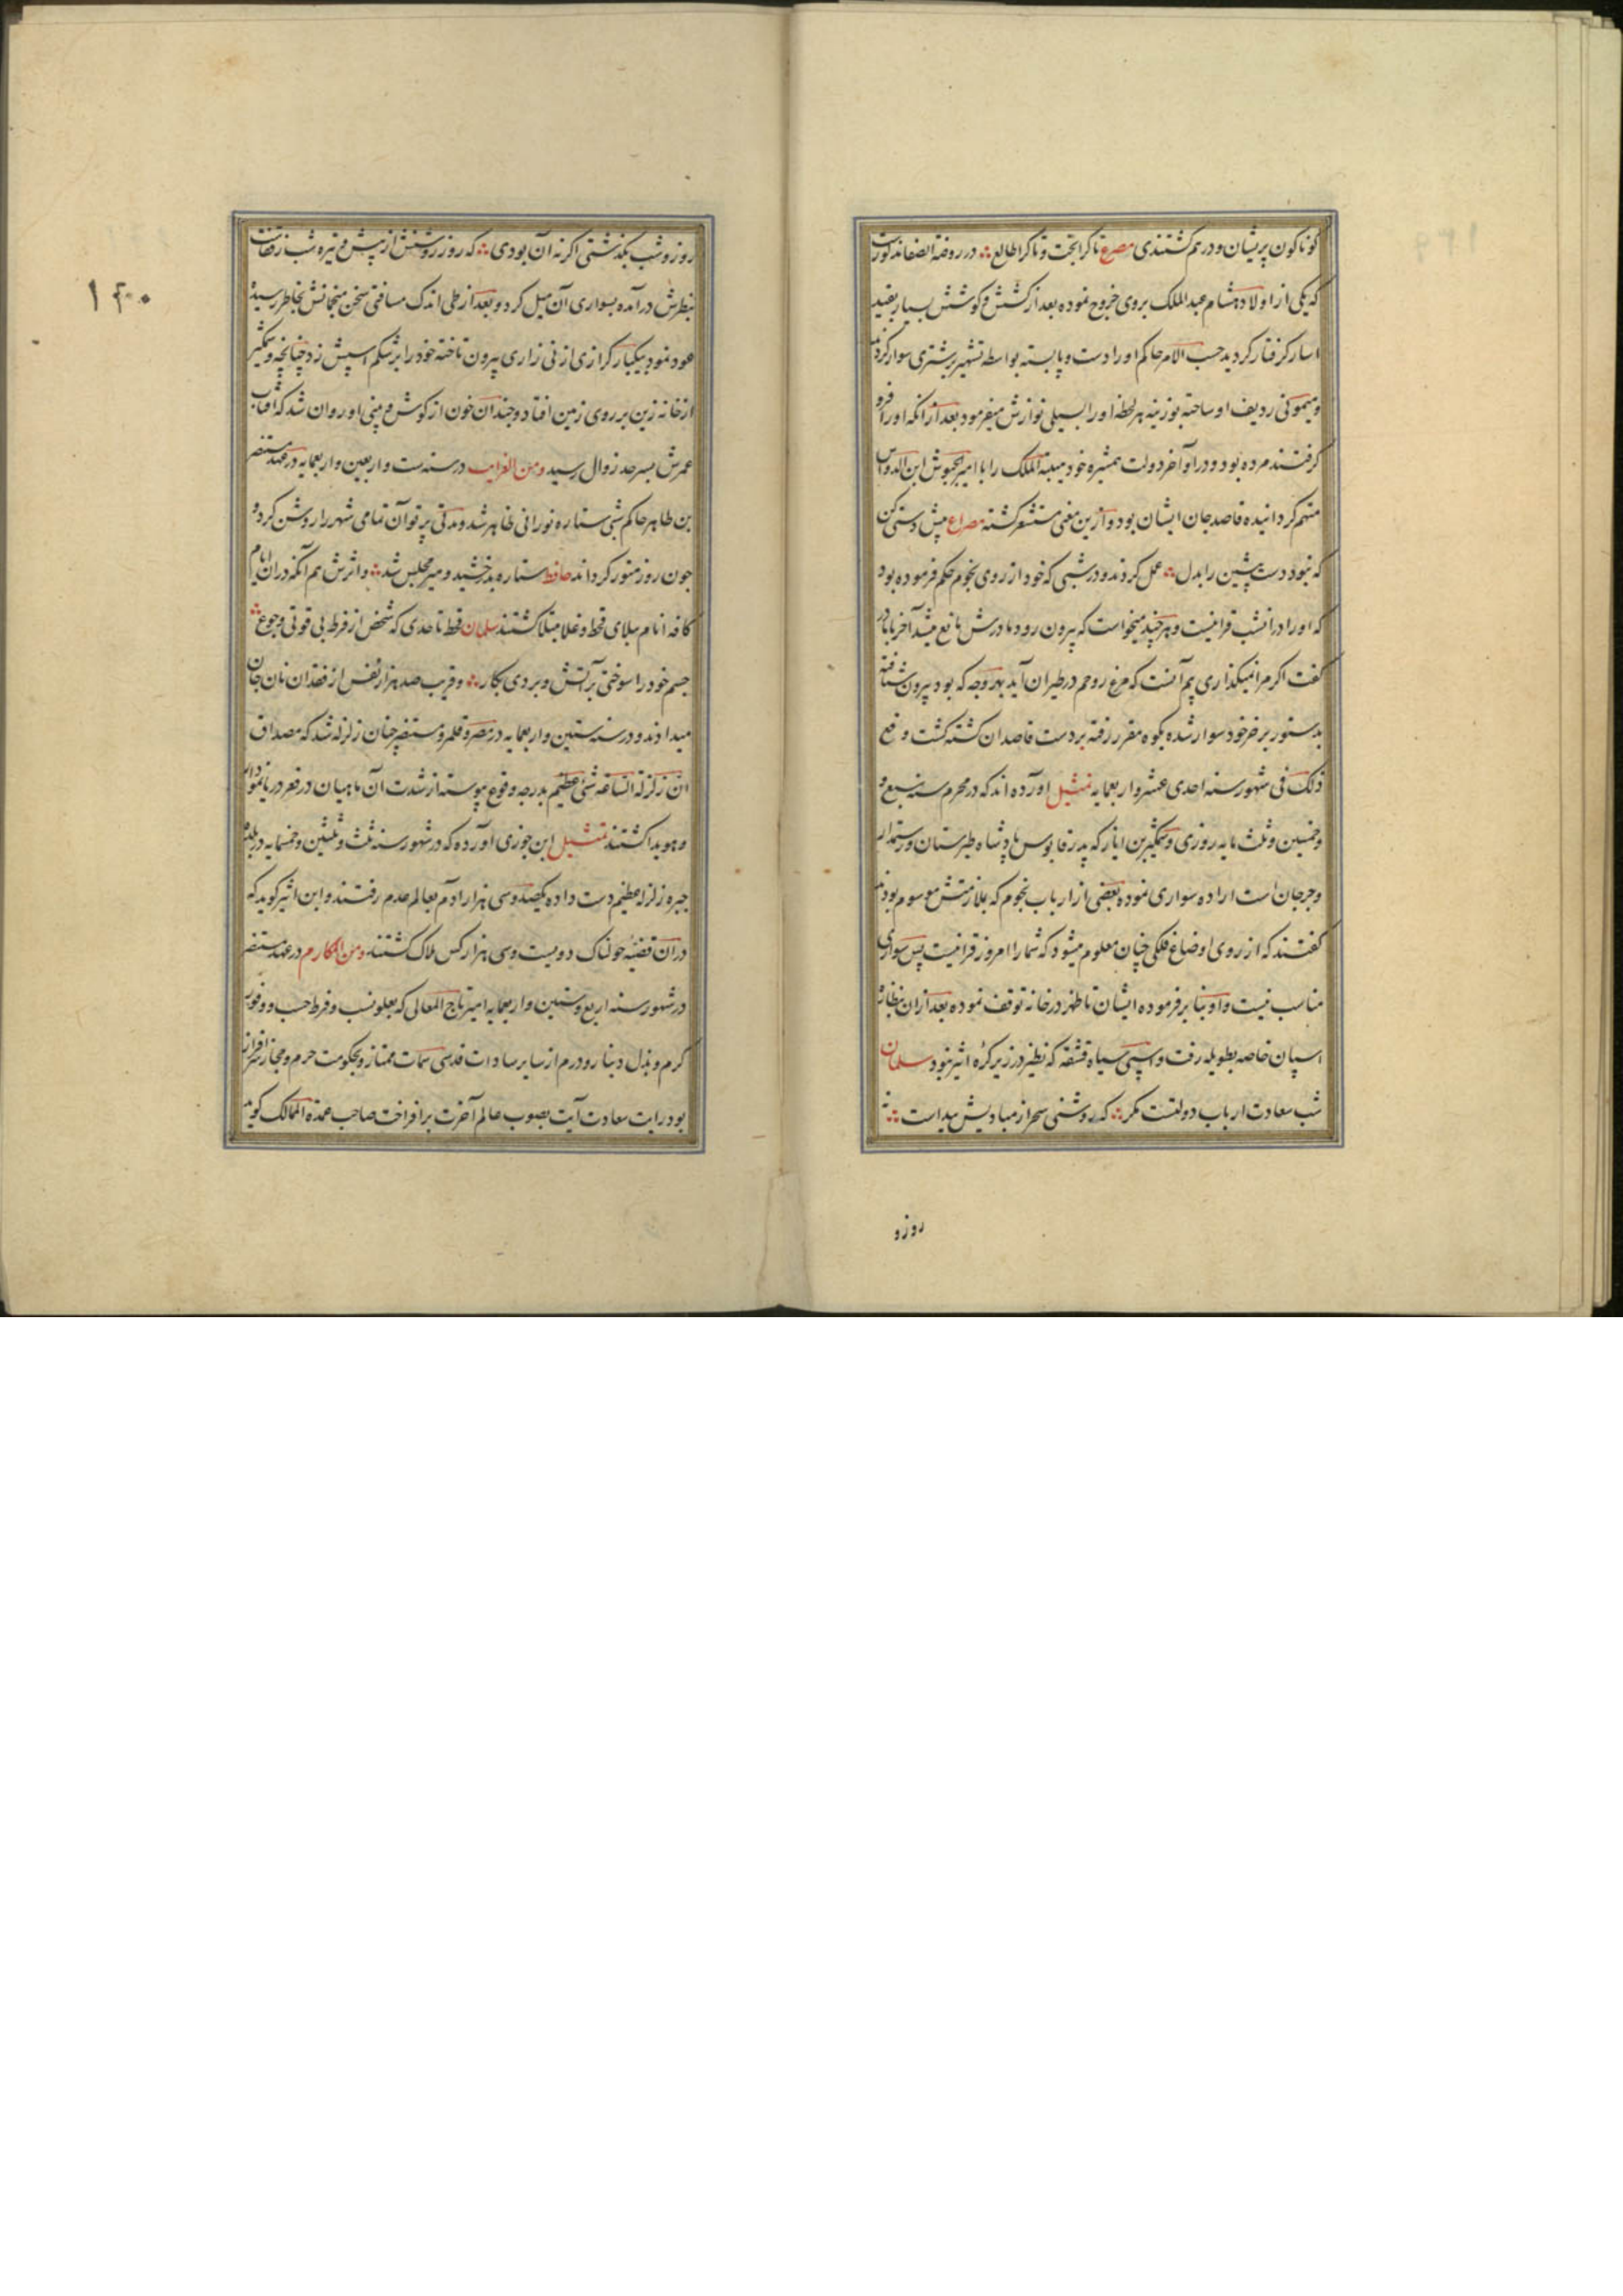 کوناکون پریشان و درهم کشتندی مصرع تا کرا بخت و تا کرا طالع در روضة الصفا مذکورست
که یکی از اولاد هشام عبد الملک بروی خروج نموده بعد از کشش و کوشش بسیار بقید
اسار کرفتار کردید حسب الامر حاکم او را دست و پا بسته بواسطه تشهیر بر شتری سوار کردند
و میمونی ردیف او ساخته بوزینه هر لحظه او را بسیلی نوازش میفرمود بعد از آنکه او را فرو
کرفتند مرده بود و در اواخر دولت همشیره خود سیدة الملک را با امیر الجیوش ابن الدواس
متهم کردانیده قاصد جان ایشان بود و ازین معنی مستشعر کشته مصراع پیش دستی کن
که نبود دست پیشین را بدل عمل کردند و در شبی که خود از روی نجوم حکم فرموده بود
که او را در انشب قرانیست و هر چند میخواست که بیرون رود مادرش مانع میشد آخر با مادر
کفت اکر مرا نمیکذاری بیم آنست که مرغ روحم در طیران آید بهر وجه که بود بیرون شتافته
بدستور بر خر خود سوار شده بکوه مقرر رفته بر دست قاصدان کشته کشت و وقع
ذلک فی شهور سنه احدی عشر و اربعمایه تمثیل آورده اند که در محرم سنه سبع و
و خمسین و ثلث مایه روزی وشمکیر بن ... که پدر قابوس پادشاه طبرستان و رستمدار
و جرجان است اراده سواری نموده بعضی از ارباب نجوم که بملازمتش موسوم بودند
کفتند که از روی اوضاع فلکی چنان معلوم میشود که شما را امروز قرانیست پس سواری
مناسب نیست و او بنا بر فرموده ایشان تا ظهر در خانه توقف نموده بعد از ان بنظاره
اسپان خاصه بطویله رفت و اسپی سیاه قشقه که نظیر در زیر کره اثیر نبود سلمان
شب سعادت ارباب دولتست مکر که روشنی سحر از مبادیش پیداست
روز و
۱۴۰
روز و شب بکذشتی اکر نه آن بودی که روز روشنش از پیش و تیره شب ز قفاست
بنظرش درآمده بسواری آن میل کرد و بعد از طی اندک مسافتی سخن منجمانش بخاطر رسیده
عود نمود بیکبار کرازی از نی زاری بیرون تاخته خود را بر شکم اسپش زد چنانچه وشمکیر
از خانه زین بر روی زمین افتاد و چندان خون از کوش و بینی او روان شد که آفتاب
عمرش بسرحد زوال رسید و من الغرایب در سنه ست و اربعین و اربعمایه در عهد مستنصر
بن طاهر حاکم شبی ستاره نورانی ظاهر شد و مدتی پرتو آن تمامی شهر را روشن کرد و
چون روز منور کرداند حافظ ستاره بدرخشید و میر مجلس شد و اثرش هم آنکه در ان ایام
کافه انام ببلای قحط و غلا مبتلا کشتند سلمان قحط تا حدی که شخص از فرط بی قوتی و جوع
جسم خود را سوختی بر آتش و بردی بکار و قریب صد هزار نفس از فقدان نان جان
میدادند و در سنه ستین و اربعمایه در مصر و قلمرو مستنصر چنان زلزله شد که مصداق
ان زلزلة الساعة شئ عظیم بدرجه وقوع پیوسته از شدت آن ماهیان در قعر دریا نمودار
و هویدا کشتند تمثیل ابن جوزی آورده که در شهور سنه ثلث و ثلثین و خمسمایه در بلده
جیره زلزله عظیم دست داده یکصد و سی هزار آدم بعالم عدم رفتند و ابن اثیر کوید که
در ان قضیه هولناک دویست و سی هزار کس هلاک کشتند و من المکارم در عهد مستنصر
در شهور سنه اربع و ستین و اربعمایه امیر تاج المعالی که بعلو نسب و فرط حسب و وفور
کرم و بذل دینار و درم از سایر سادات قدسی سمات ممتاز و بحکومت حرم و حجاز سرافراز
بود رایت سعادت آیت بصوب عالم آخرت برافراخت صاحب عمدة الممالک کوید